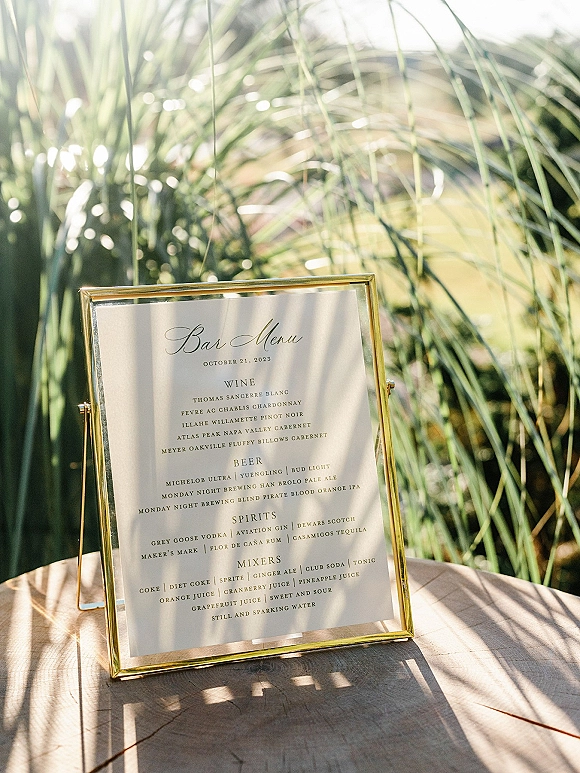 Bar Menu
OCTOBER 21, 2023
WINE
THOMAS SANCERRE BLANC
FEVRE AC CHABLIS CHARDONNAY
ILLAHE WILLAMETTE PINOT NOIR
ATLAS PEAK NAPA VALLEY CABERNET
MEYER OAKVILLE FLUFFY BILLOWS CABERNET
BEER
MICHELOB ULTRA | YUENGLING | BUD LIGHT
MONDAY NIGHT BREWING HAN BROLO PALE ALE
MONDAY NIGHT BREWING BLIND PIRATE BLOOD ORANGE IPA
SPIRITS
GREY GOOSE VODKA | AVIATION GIN | DEWARS SCOTCH
MAKER'S MARK | FLOR DE CAÑA RUM | CASAMIGOS TEQUILA
MIXERS
COKE | DIET COKE | SPRITE | GINGER ALE | CLUB SODA | TONIC
ORANGE JUICE | CRANBERRY JUICE | PINEAPPLE JUICE
GRAPEFRUIT JUICE | SWEET AND SOUR
STILL AND SPARKING WATER